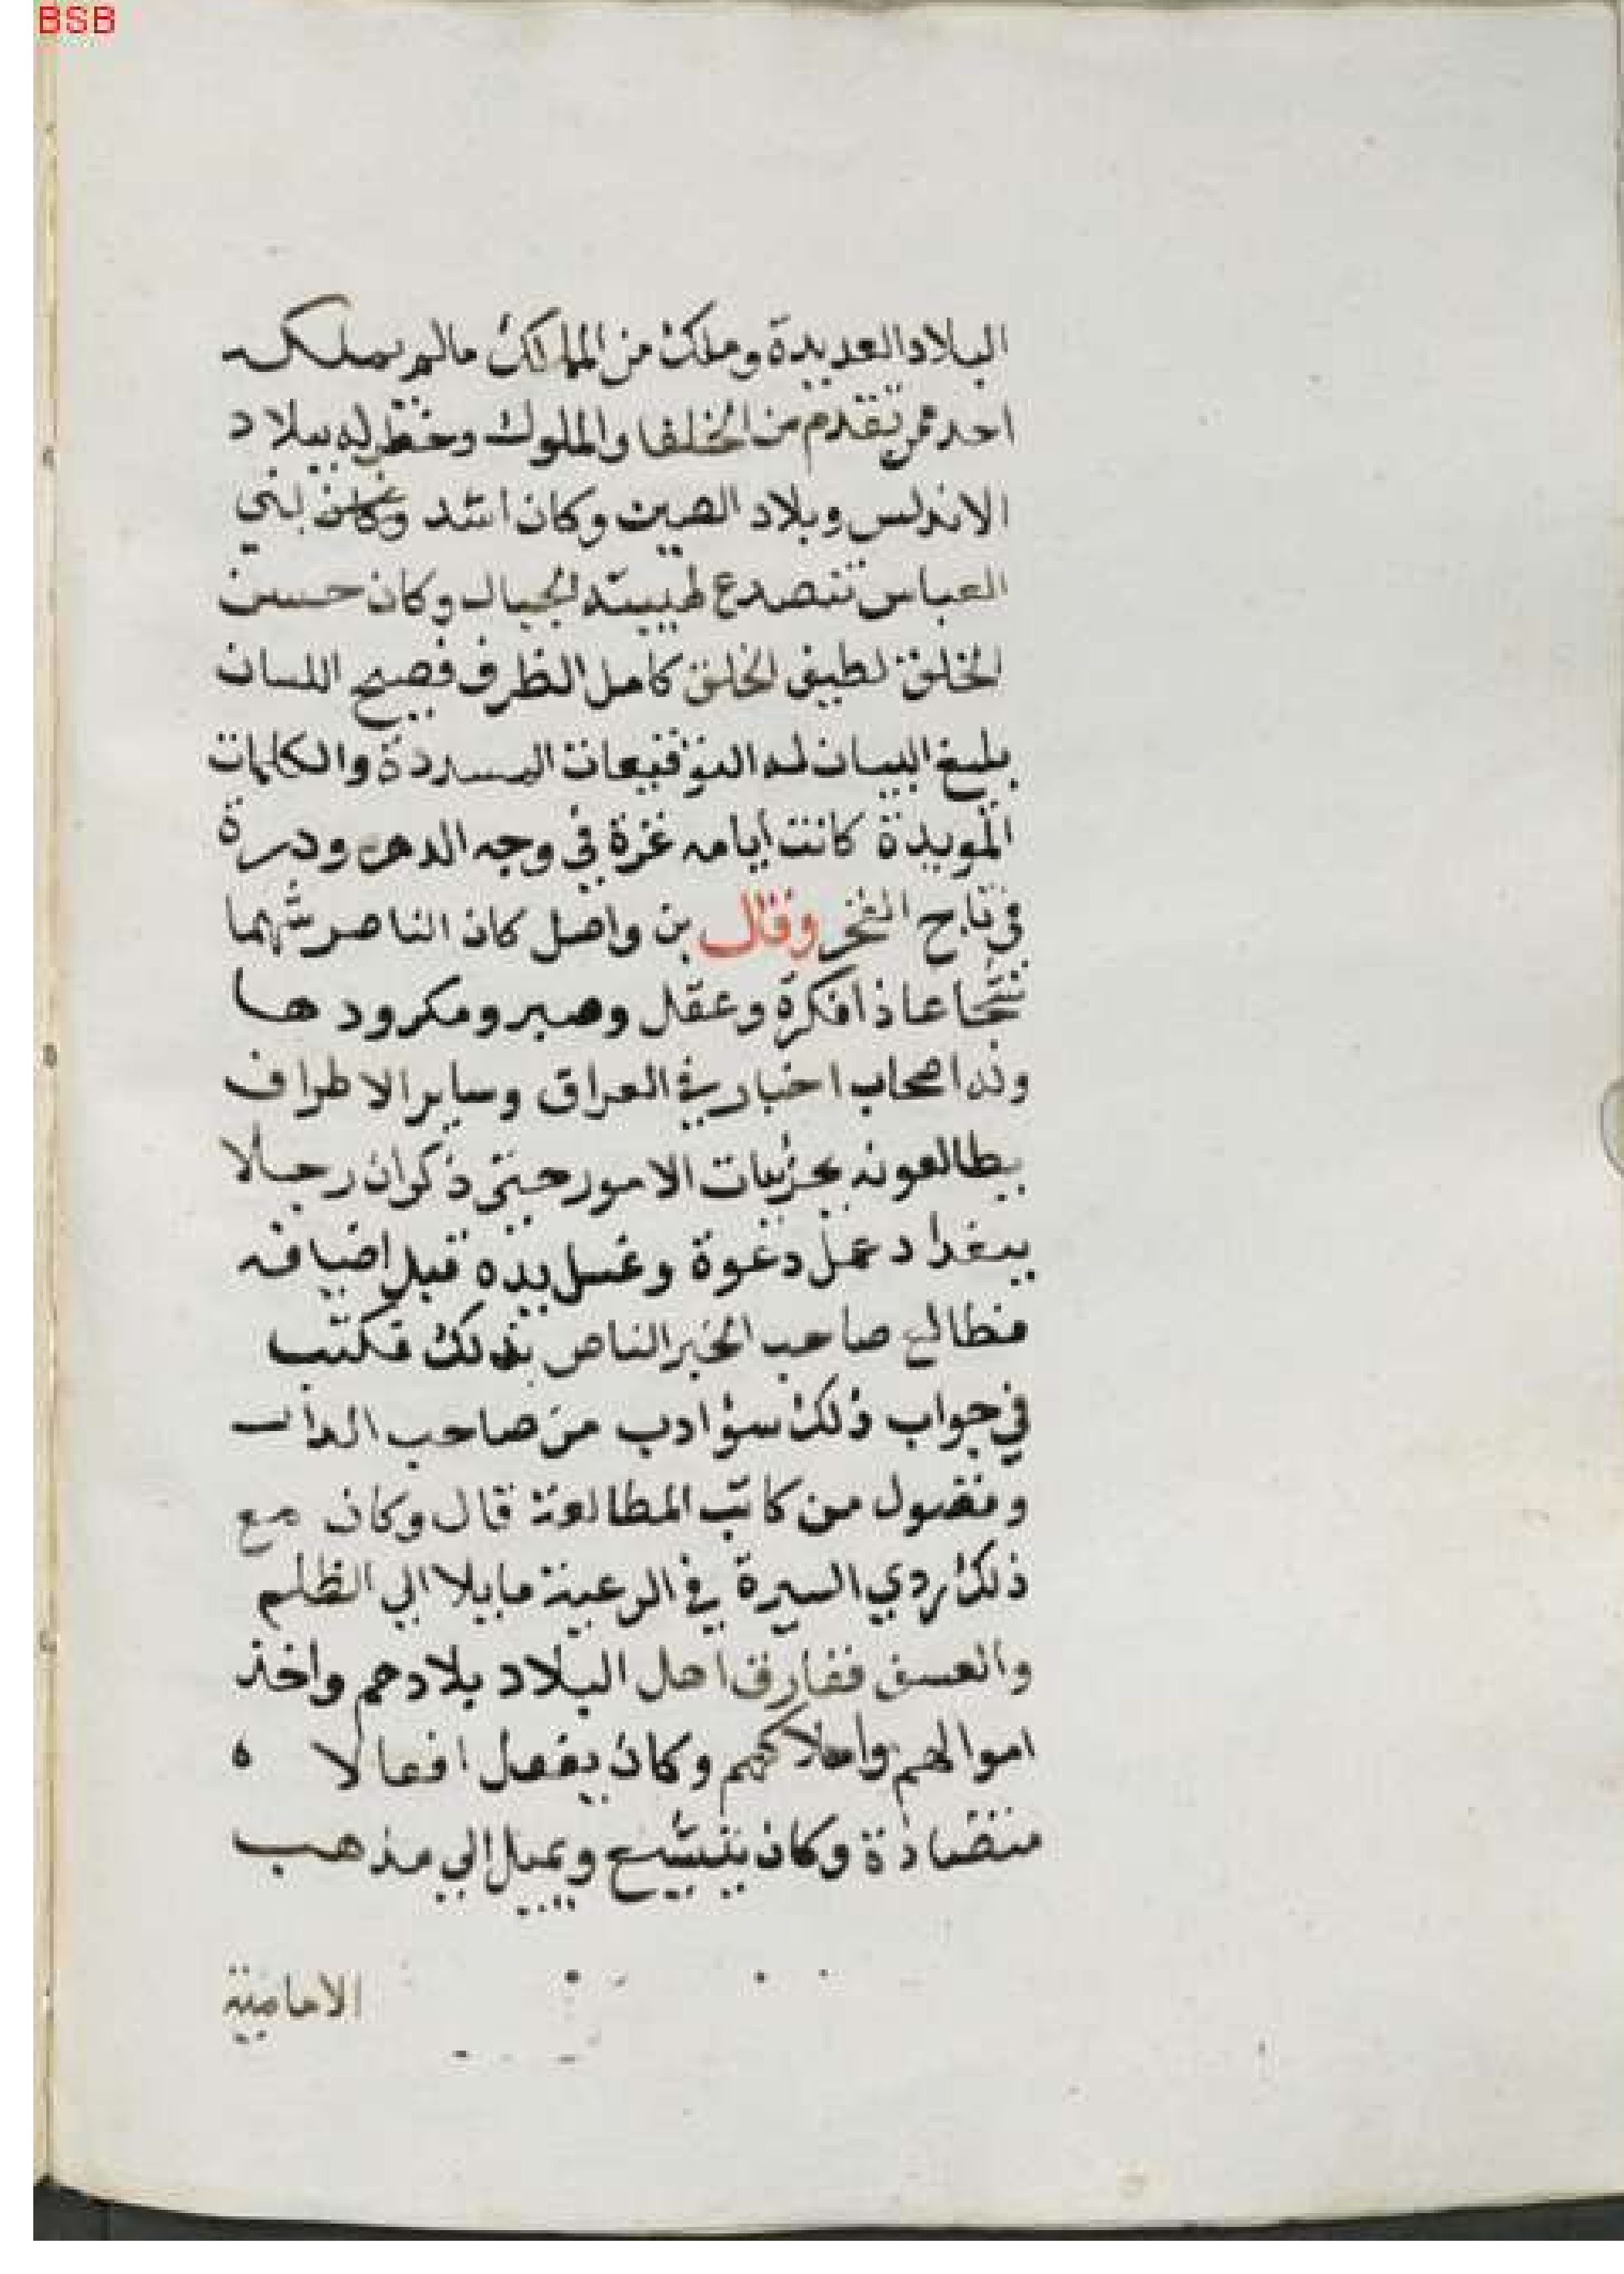 BSB
البلاد العديدة وملك من الممالك مالم يملكـه
احد ممن تقدم من الخلفا والملوك وخطب له ببلاد
الاندلس وبلاد الصين وكان اسد بني
العباس تتصدع لهيبته الجبال وكان حسن
الخلق لطيف الخلق كامل الظرف فصيح اللسان
بليغ البيان له التوقيعات المسددة والكلمات
المويدة كانت أيامه غرة في وجه الدهر ودرة
في تاج الفخر وقال بن واصل كان الناصر شهما
شجاعا ذا فكرة وعقل وصبر ومكر ودها
وله اصحاب اخبار في العراق وساير الاطراف
يطالعونه بجزيات الامور حتى ذكر ان رجلا
ببغداد عمل دعوة وغسل يده قبل اضيافه
فطالع صاحب الخبر الناصر بذلك فكتب
في جواب ذلك سؤ ادب من صاحب الدار
وفضول من كاتب المطالعة قال وكان مع
ذلك ردي السيرة في الرعية مايلا الي الظلم
والعسف ففارق اهل البلاد بلادهم واخذ
اموالهم واملاكهم وكان يفعل افعالا ه
متضادة وكان يتشيع ويميل الي مذهب
الامامية